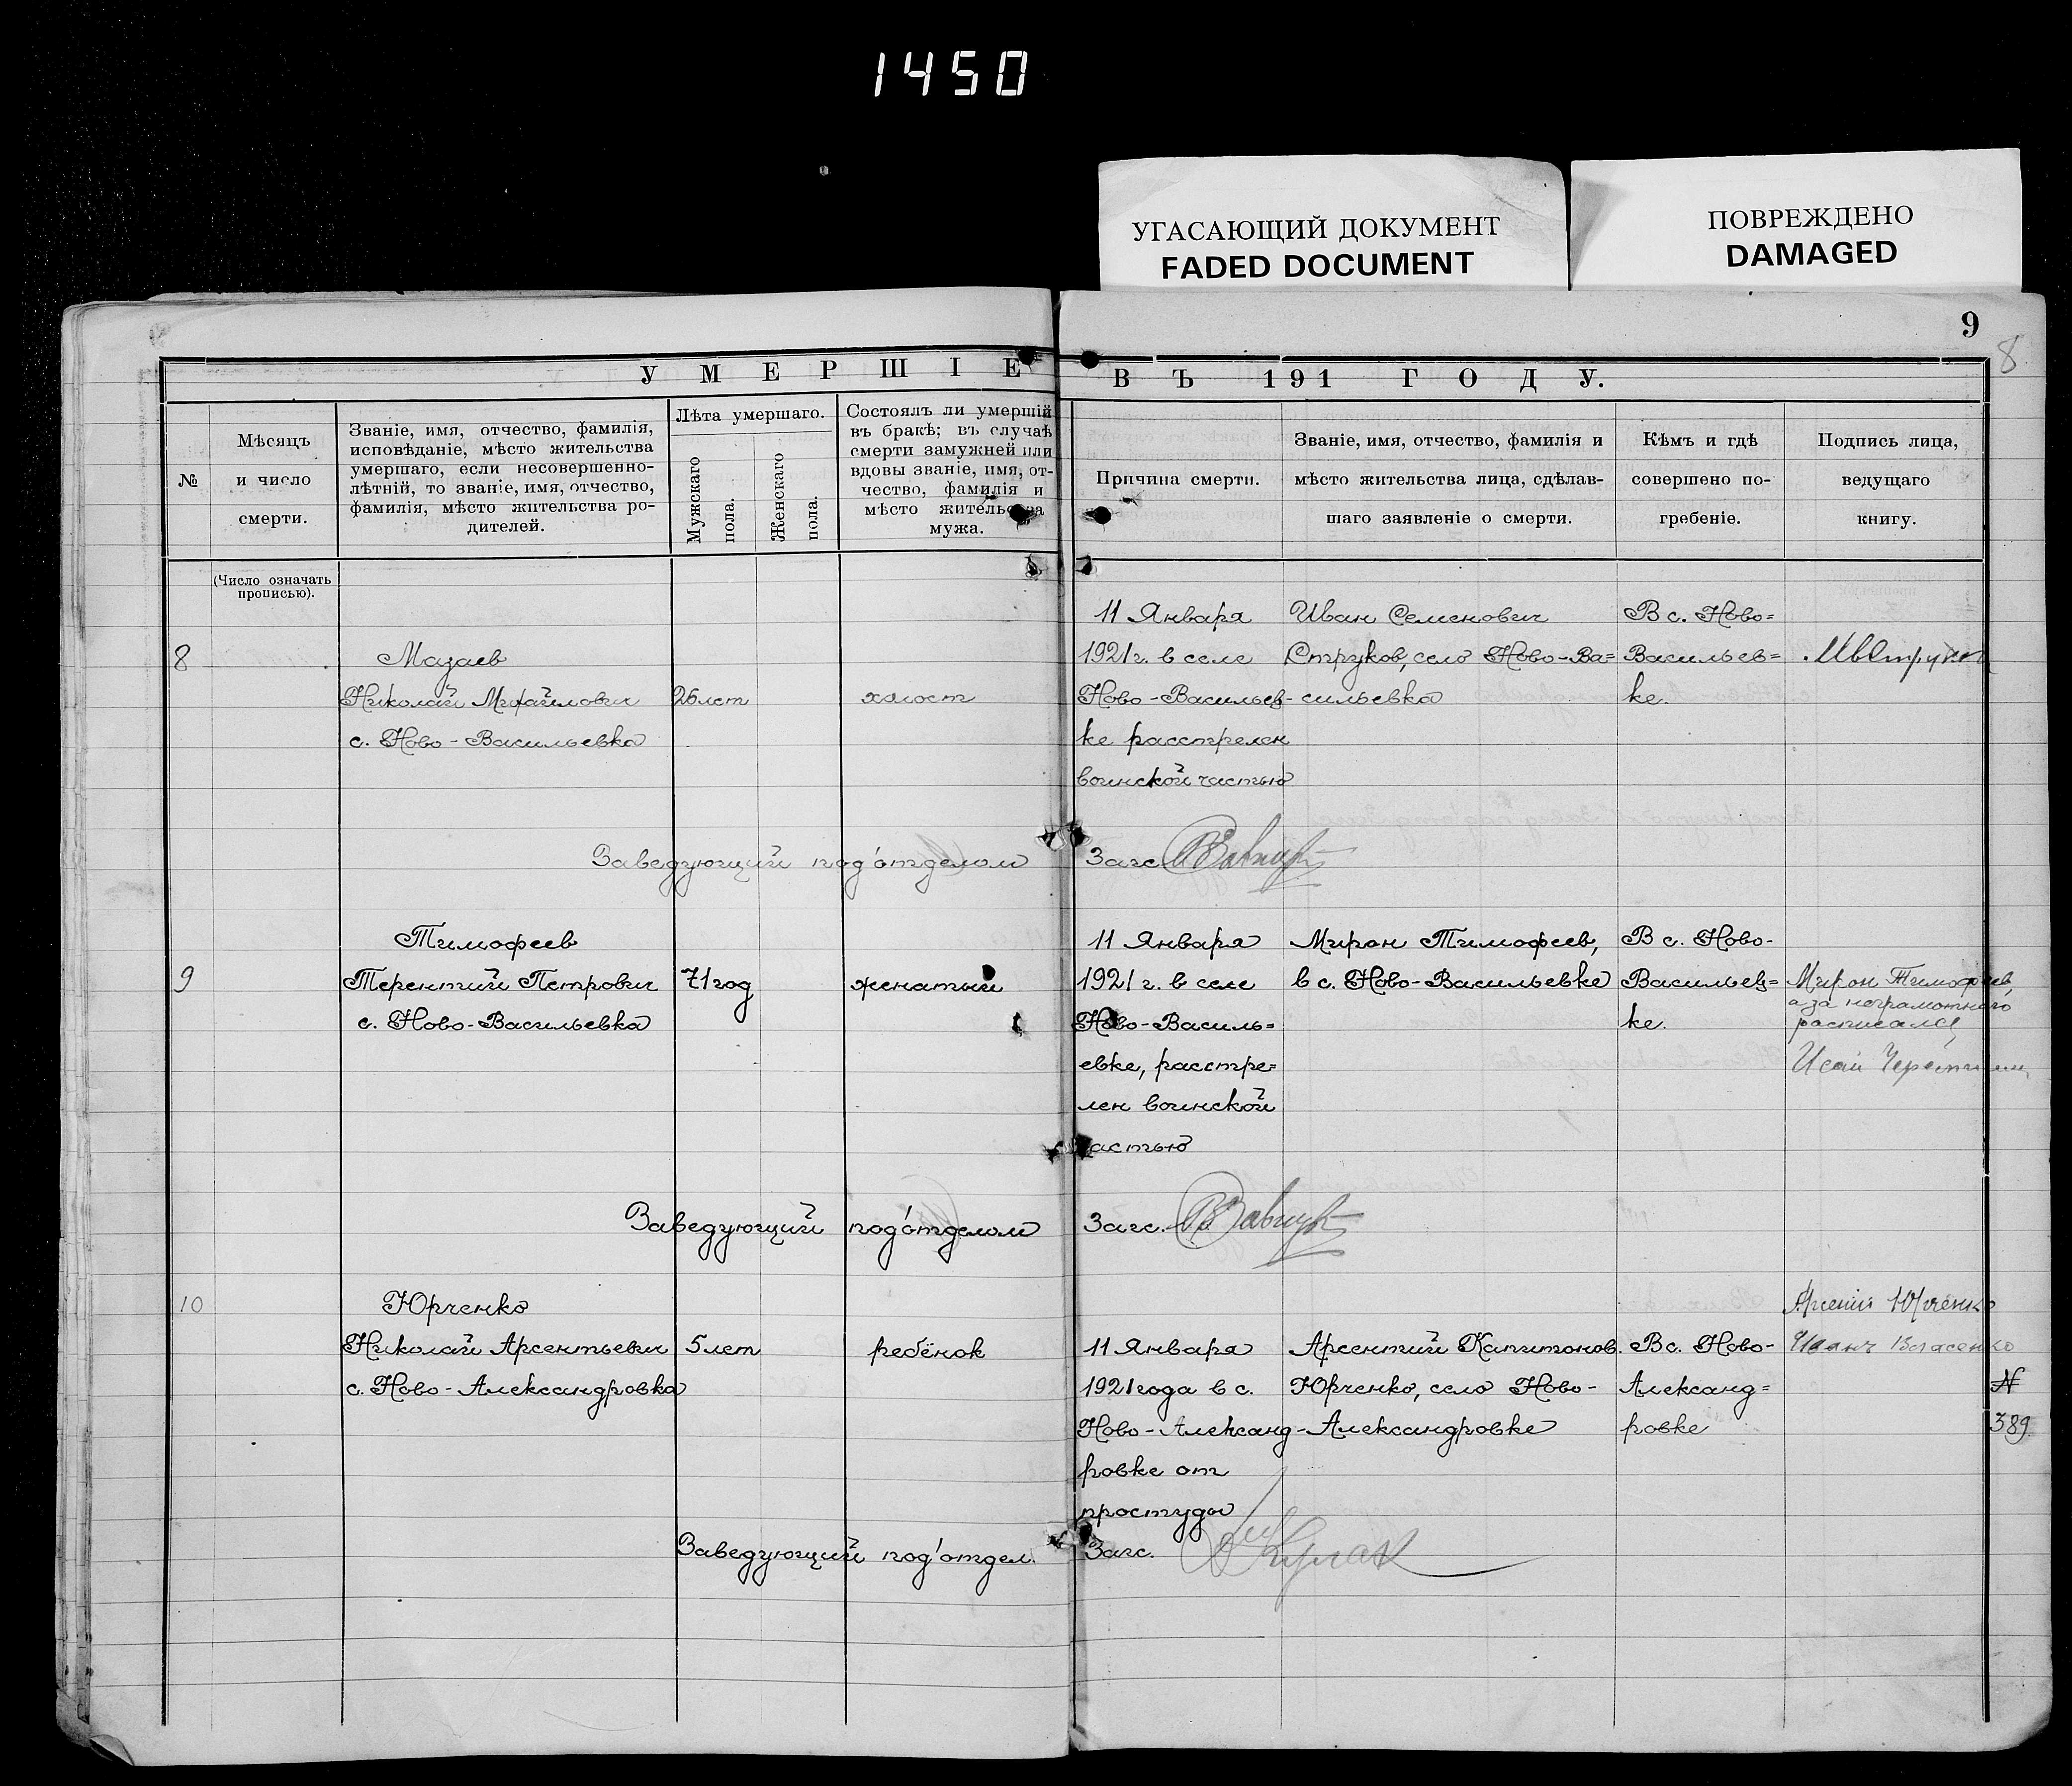 1450
УГАСАЮЩИЙ ДОКУМЕНТ
FADED DOCUMENT
ПОВРЕЖДЕНО
DAMAGED
9
8
УМЕРШІЕ ВЪ 191 ГОДУ.
№
Мѣсяцъ
и число
смерти.
Званіе, имя, отчество, фамилія,
исповѣданіе, мѣсто жительства
умершаго, если несовершенно-
лѣтній, то званіе, имя, отчество,
фамилія, мѣсто жительства ро-
дителей.
Лѣта умершаго.
Мужскаго
пола.
Женскаго
пола.
Состоялъ ли умершій
въ бракѣ; въ случаѣ
смерти замужней или
вдовы званіе, имя, от-
чество, фамилія и
мѣсто жительства
мужа.
Причина смерти.
Званіе, имя, отчество, фамилія и
мѣсто жительства лица, сдѣлав-
шаго заявленіе о смерти.
Кѣмъ и гдѣ
совершено по-
гребеніе.
Подпись лица,
ведущаго
книгу.
(Число означать
прописью).
8
Мазаев
Николай Михайлович
с. Ново-Васильевка
26 лет
холост
11 Января
1921 г. в селе
Ново-Васильев-
ке расстрелен
воинской частью
Иван Семенович
Струков, село Ново-Ва=
сильевка
В с. Ново=
Васильев=
ке.
Заведующий под'отделом Загс.
9
Тимофеев
Терентий Петрович
с. Ново-Васильевка
71 год
женатый
11 Января
1921 г. в селе
Ново-Василь=
евке, расстре=
лен воинской
частью
Мирон Тимофеев,
в с. Ново-Васильевке
В с. Ново-
Васильев=
ке.
Мирон Тимофеев,
а за неграмотного
расписался
Исай
Заведующий под'отделом Загс.
10
Юрченко
Николай Арсентьевич
с. Ново-Александровка
5 лет
ребёнок
11 Января
1921 года в с.
Ново-Александ-
ровке от
простуды
Арсентий Капитонов.
Юрченко, село Ново-
Александровке
В с. Ново-
Александ=
ровке
Арсений Юрченко
Иванъ Власенко
N
389
Заведующий под'отдел. Загс.